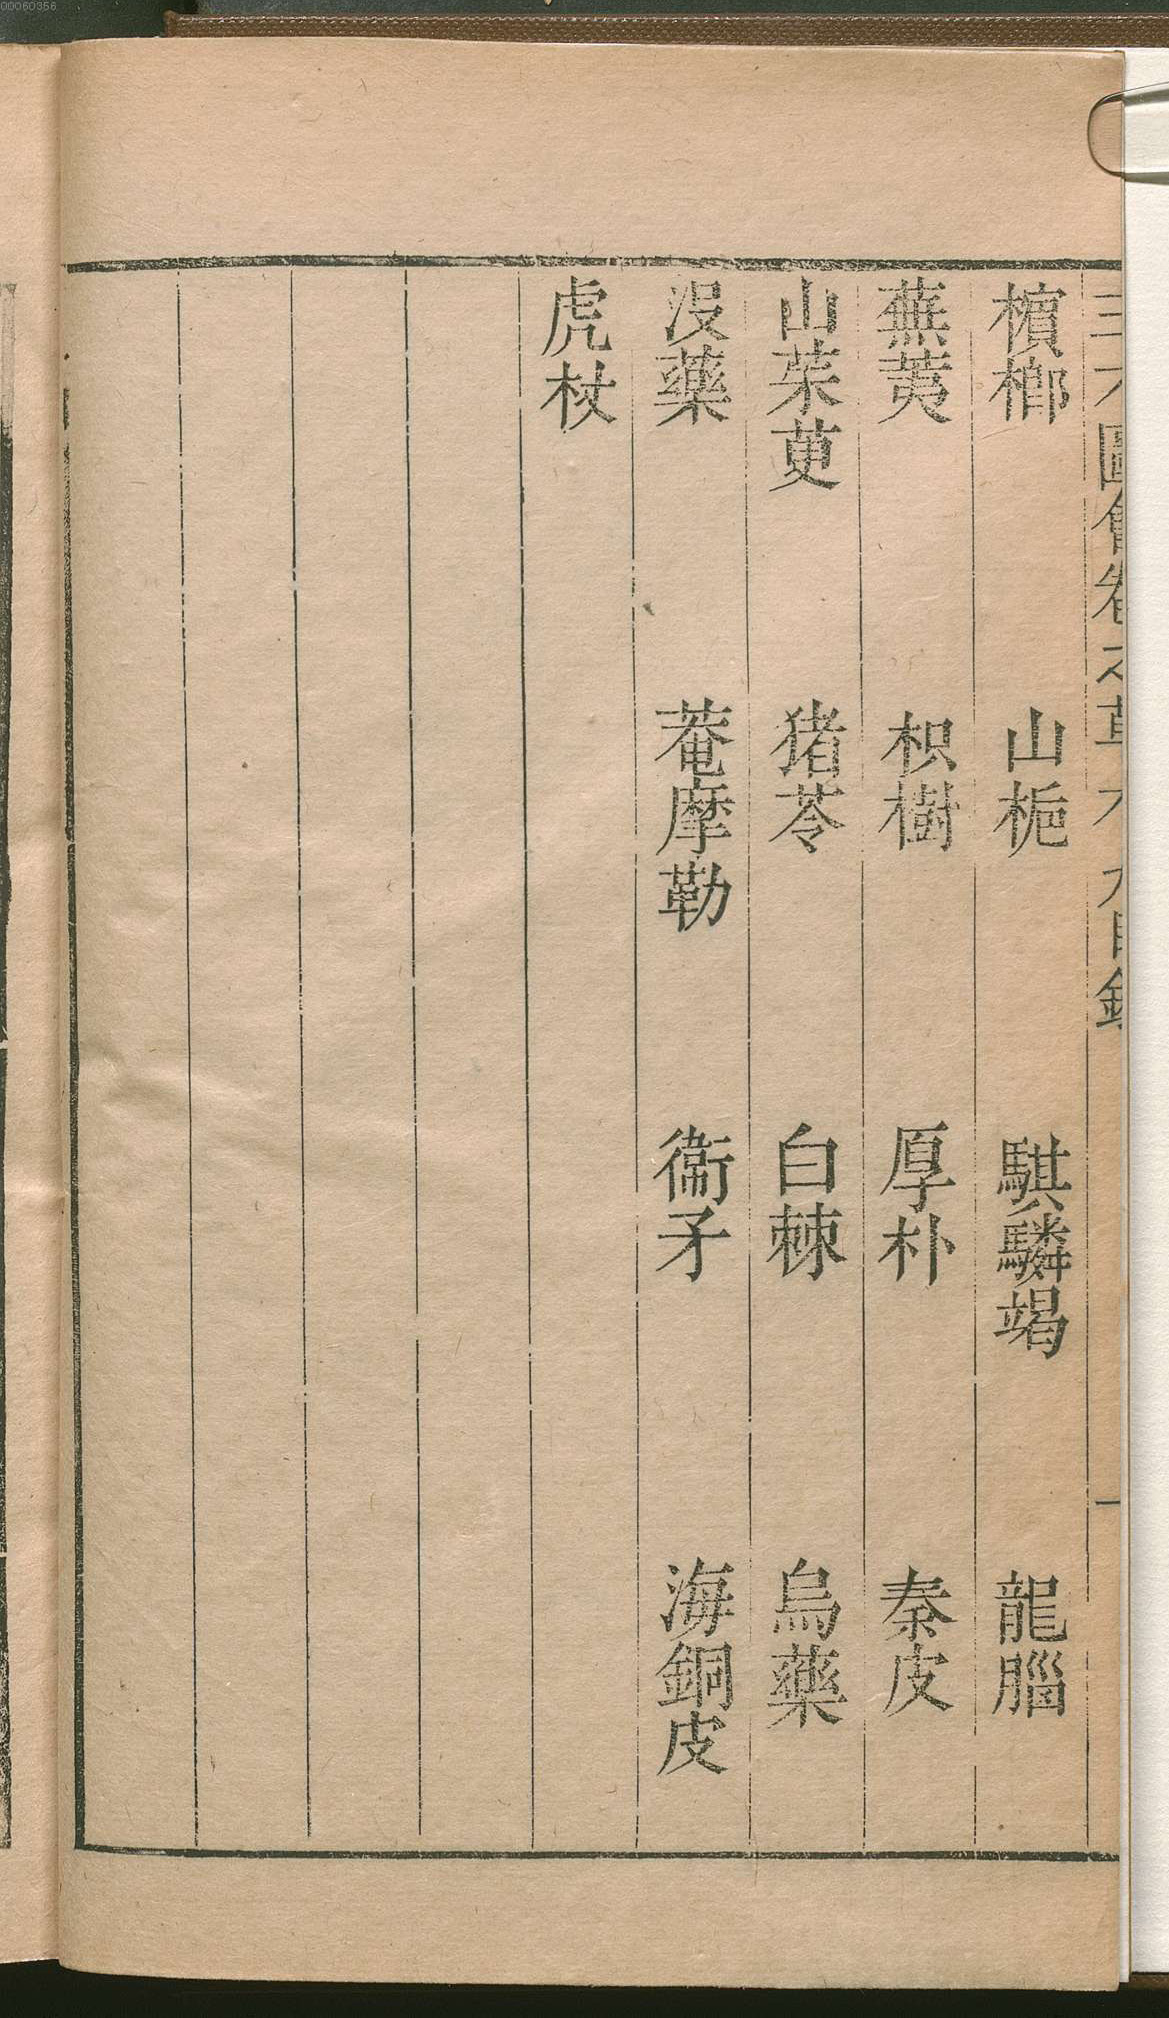 三才圖會卷之草木九目錄 一
檳榔 山梔 騏驎竭 龍腦
蕪荑 枳樹 厚朴 秦皮
山茱萸 猪苓 白棘 烏藥
沒藥 菴摩勒 衞矛 海銅皮
虎杖
00060356